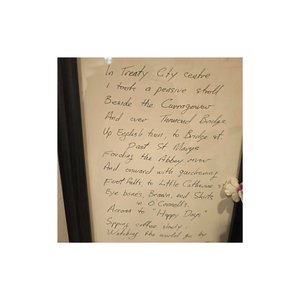 In Treaty City centre
I took a pensive stroll
Beside the
And over Thomond Bridge
Up English town, to Bridge st.
Past St Marys
Fording the Abbey river
And onward with
Foot falls, to Little Catherine st
Eye Brown, and
in O'Connell's.
Across to "Happy Days"
Sipping coffee slowly:
Watching the world go by